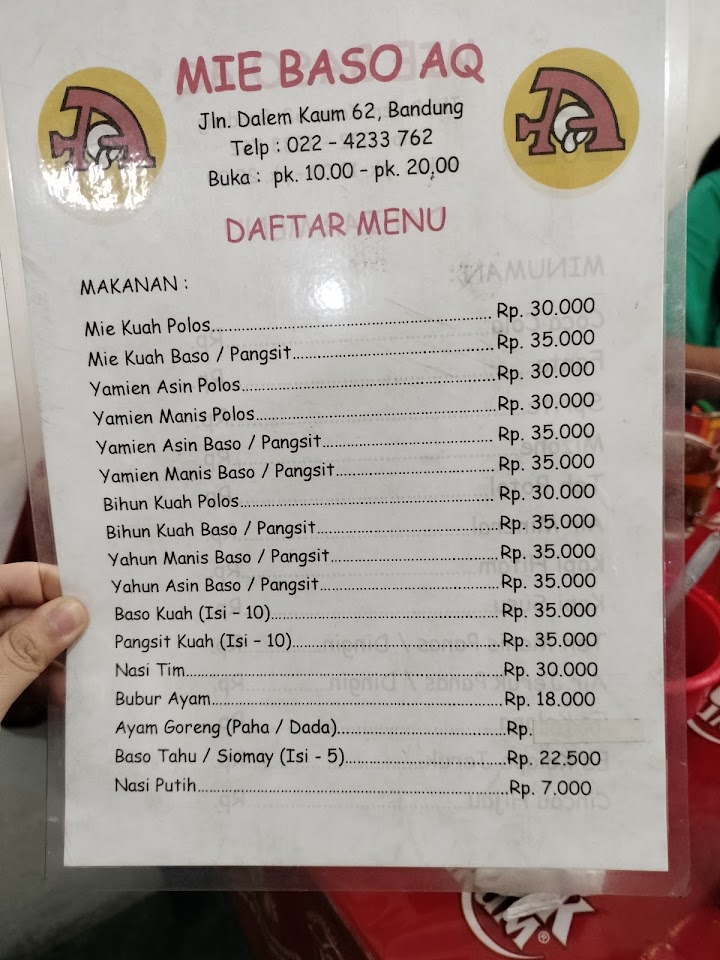 MIE BASO AQ
Jln. Dalem Kaum 62, Bandung
Telp : 022 - 4233 762
Buka : pk. 10.00 - pk. 20,00
DAFTAR MENU
MAKANAN :
Mie Kuah Polos........ Rp. 30.000
Mie Kuah Baso / Pangsit........ Rp. 35.000
Yamien Asin Polos........ Rp. 30.000
Yamien Manis Polos........ Rp. 30.000
Yamien Asin Baso / Pangsit........ Rp. 35.000
Yamien Manis Baso / Pangsit........ Rp. 35.000
Bihun Kuah Polos........ Rp. 30.000
Bihun Kuah Baso / Pangsit........ Rp. 35.000
Yahun Manis Baso / Pangsit........ Rp. 35.000
Yahun Asin Baso / Pangsit........ Rp. 35.000
Baso Kuah (Isi - 10)........ Rp. 35.000
Pangsit Kuah (Isi - 10)........ Rp. 35.000
Nasi Tim........ Rp. 30.000
Bubur Ayam........ Rp. 18.000
Ayam Goreng (Paha / Dada)........ Rp.
Baso Tahu / Siomay (Isi - 5)........ Rp. 22.500
Nasi Putih........ Rp. 7.000